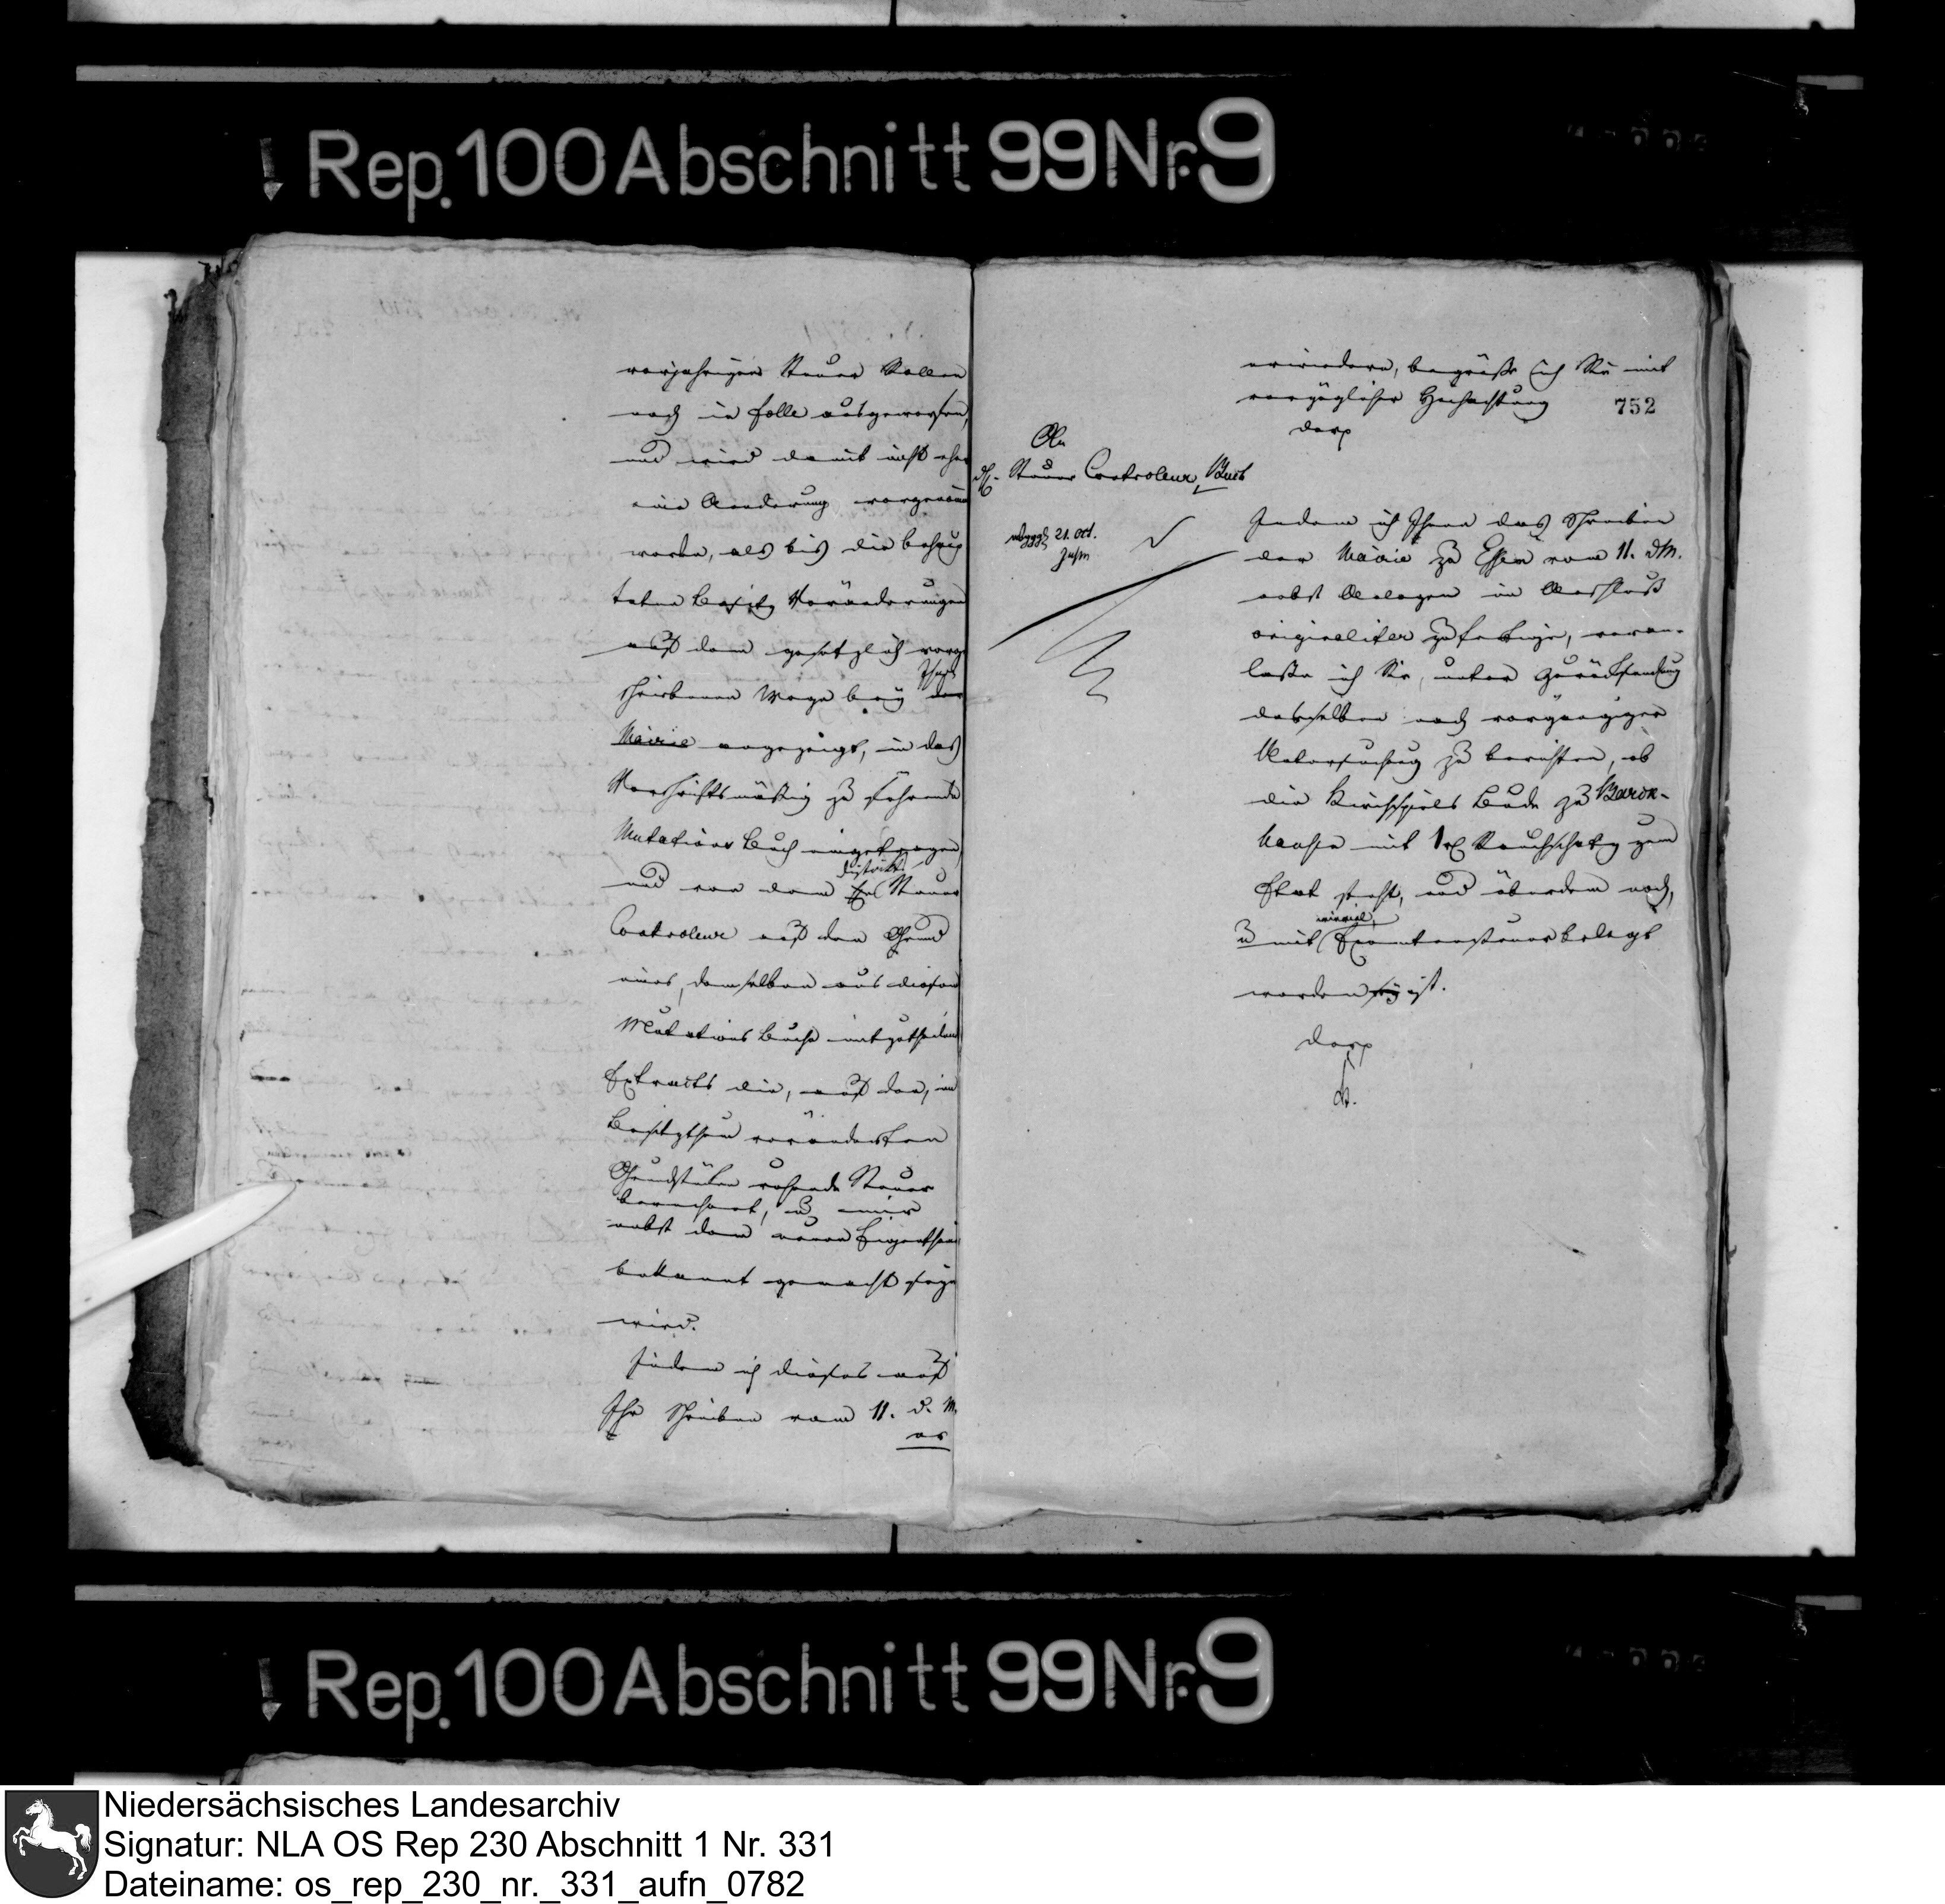 Rep. 100 Abschnitt 99 Nr. 9
vorjährigen Steuer Rollen
noch in Folle ausgeworfen,
und wird damit nicht eher
eine Aenderung vorgenom̄en
werden, als bis die behaup
teten Besitz Veränderungen
auf dem gesetzlich vorge
Ihnen
schriebenen Wege bey der
Mairie angezeigt, in das
Vorschriftsmäßig zu führende
Mutations Buch eingetragen,
districts
und von dem Steuer
Controleur auf den Grund
eines, demselben aus diesem
Mutations Buche mitgetheilten
Extracts die, auf den, im
Besitzthum veränderten
Grundstücken ruhende Steuer
berechnet, u mir
nebst dem neuen Eigenthümer
bekannt gemacht seyn
wird.
Indem ich dieses auf
Ihr Schreiben vom 11. d. M.
er
erwiedere, begrüße ich Sie mit
vorzüglicher Hochachtung
752
An
Steuer Controleur, Buch
21. Oct.
Indem ich Ihnen das Schreiben
der Mairie zu Essen vom 11. d M.
nebst Anlagen im Anschluß
originaliter zufertige, veran-
lasse ich Sie, unter Zurücksendung
desselben nach vorgängiger
Untersuchung zu berichten, ob
die Kirchspiels Bude zu Barck-
hausen mit 1 Rauchschatz zum
Etat steht, und überdem noch,
u mit belegt
worden ist.
Rep. 100 Abschnitt 99 Nr. 9
Niedersächsisches Landesarchiv
Signatur: NLA OS Rep 230 Abschnitt 1 Nr. 331
Dateiname: os_rep_230_nr._331_aufn_0782